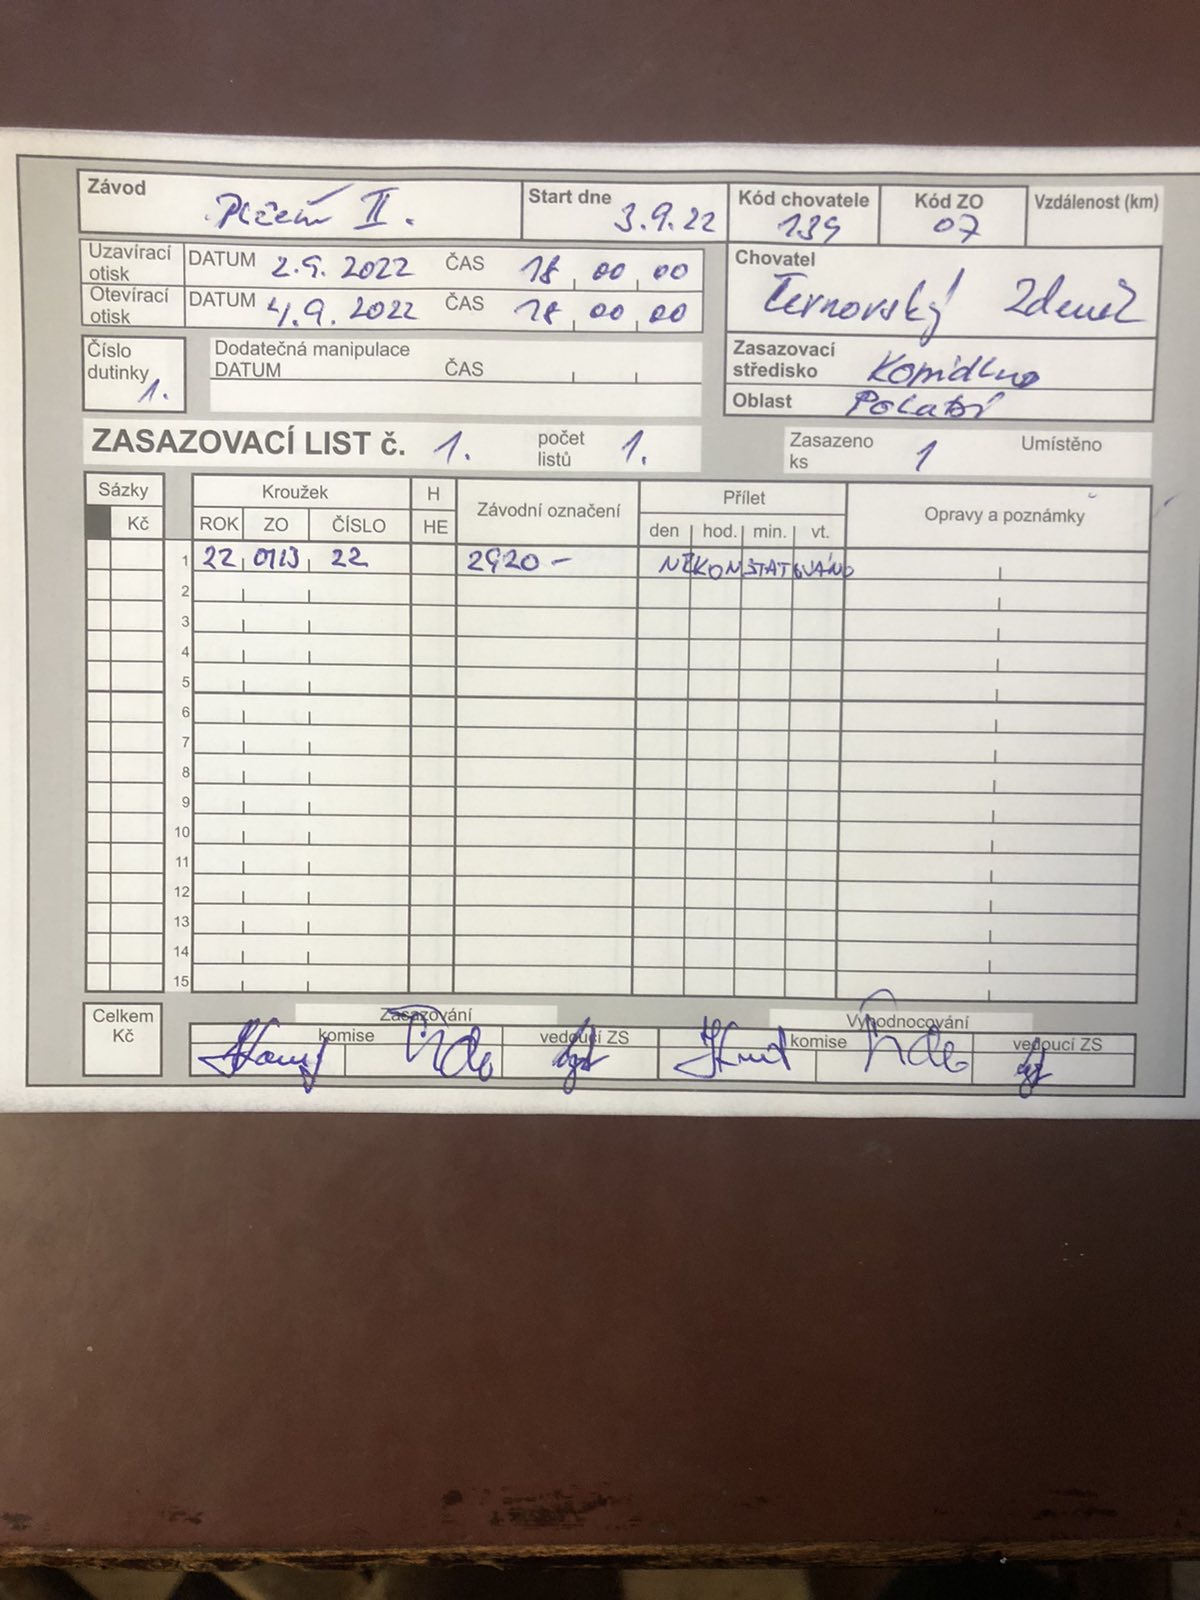 Závod Plzeň II. Start dne 3.9.22 Kód chovatele 139 Kód ZO 07 Vzdálenost (km)
Uzavírací otisk DATUM 2.9.2022 ČAS 18 00 00
Otevírací otisk DATUM 4.9.2022 ČAS 18 00 00
Chovatel
Černovský Zdeněk
Číslo dutinky 1.
Dodatečná manipulace
DATUM ČAS
Zasazovací středisko Kopidlno
Oblast Polabí
ZASAZOVACÍ LIST č. 1. počet listů 1. Zasazeno ks 1 Umístěno
Sázky Kroužek H Závodní označení Přílet Opravy a poznámky
Kč ROK ZO ČÍSLO HE den hod. min. vt.
1 22 0713 22 2920 – NEKONSTATOVÁNO
2
3
4
5
6
7
8
9
10
11
12
13
14
15
Celkem Kč
Zasazování Vyhodnocování
komise vedoucí ZS komise vedoucí ZS